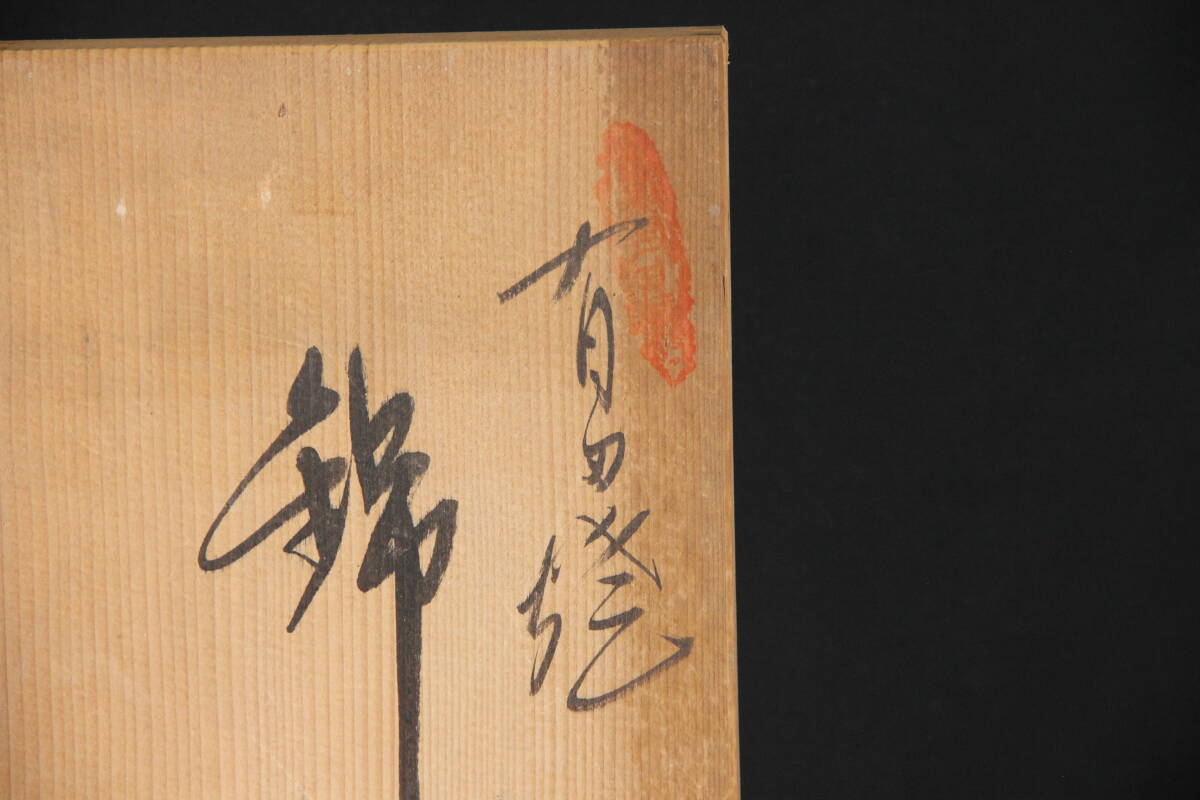 有田焼
錦